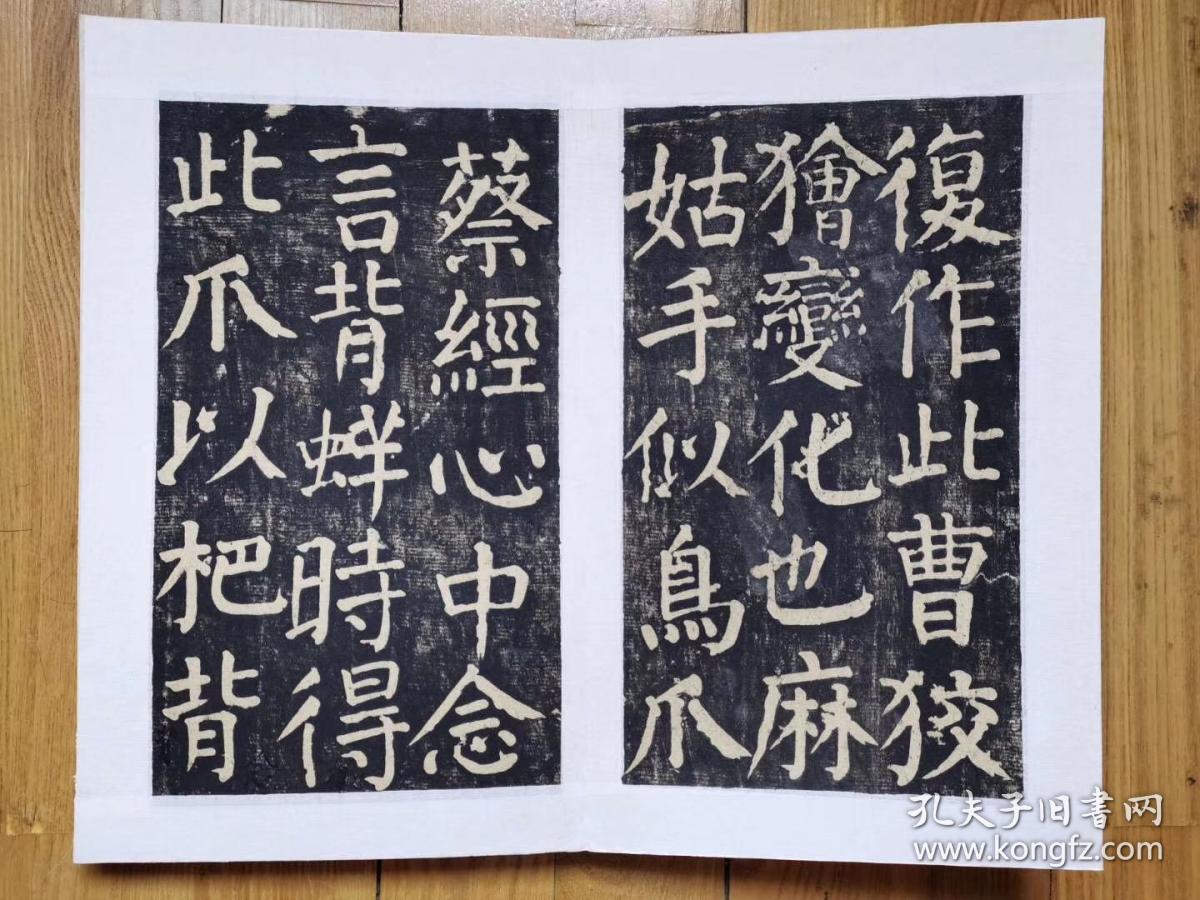 復作此曹狡
獪變化也麻
姑手似鳥爪
蔡經心中念
言背蛘時得
此爪以杷背
孔夫子旧书网
www.kongfz.com